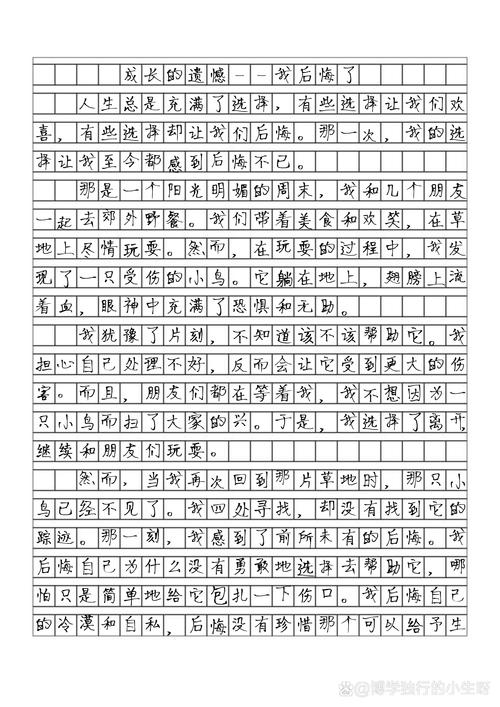 成长的遗憾--我后悔了
人生总是充满了选择，有些选择让我们欢
喜，有些选择却让我们后悔。那一次，我的选
择让我至今都感到后悔不已。
那是一个阳光明媚的周末，我和几个朋友
一起去郊外野餐。我们带着美食和欢笑，在草
地上尽情玩耍。然而，在玩耍的过程中，我发
现了一只受伤的小鸟。它躺在地上，翅膀上流
着血，眼神中充满了恐惧和无助。
我犹豫了片刻，不知道该不该帮助它。我
担心自己处理不好，反而会让它受到更大的伤
害。而且，朋友们都在等着我，我不想因为一
只小鸟而扫了大家的兴。于是，我选择了离开，
继续和朋友们玩耍。
然而，当我再次回到那片草地时，那只小
鸟已经不见了。我四处寻找，却没有找到它的
踪迹。那一刻，我感到了前所未有的后悔。我
后悔自己为什么没有勇敢地选择去帮助它，哪
怕只是简单地给它包扎一下伤口。我后悔自己
的冷漠和自私，后悔没有珍惜那个可以给予生
@博学独行的小生呀